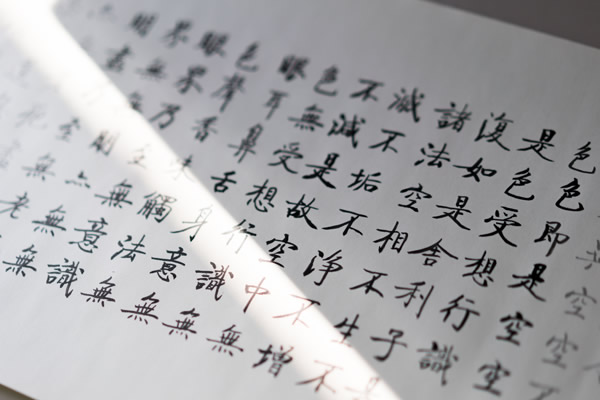 異空空不
色色即是空空
是色受想行識
復如是舍利子是
諸法空相不生不
滅不垢不淨不增
不減是故空中無
色無受想行識無
眼耳鼻舌身意無
色聲香味觸法無
眼界乃至無意識
界無無明亦無無
明盡
無老